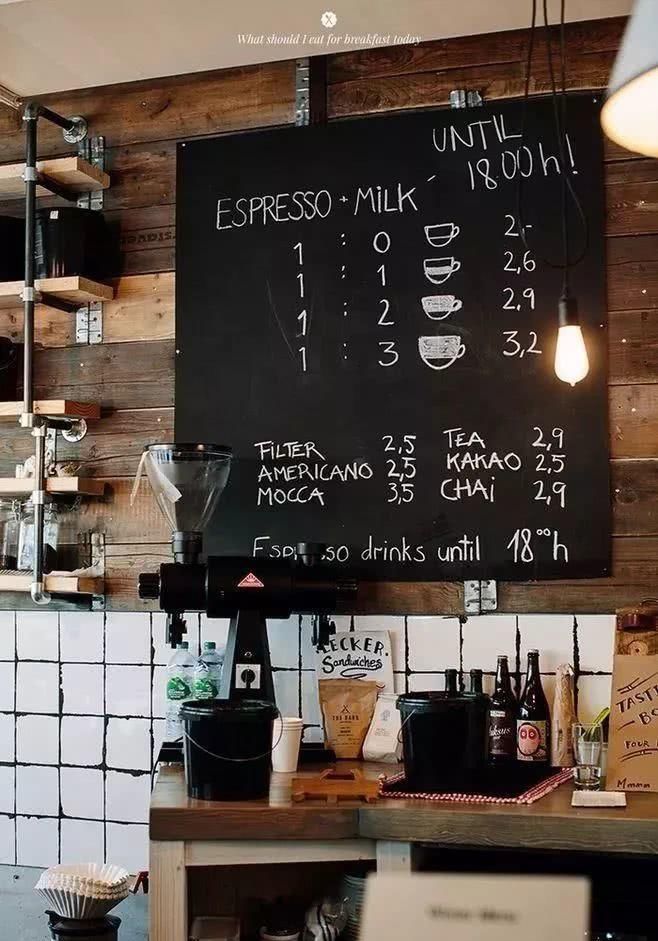 What should I eat for breakfast today
UNTIL
18.00h!
ESPRESSO + MILK
1 : 0 2,-
1 : 1 2,6
1 : 2 2,9
1 : 3 3,2
FILTER 2,5 TEA 2,9
AMERICANO 2,5 KAKAO 2,5
MOCCA 3,5 CHAI 2,9
drinks until 18°°h
LECKER.
Sandwiches
THE BARN
TASTE
FOUR
Mmmm